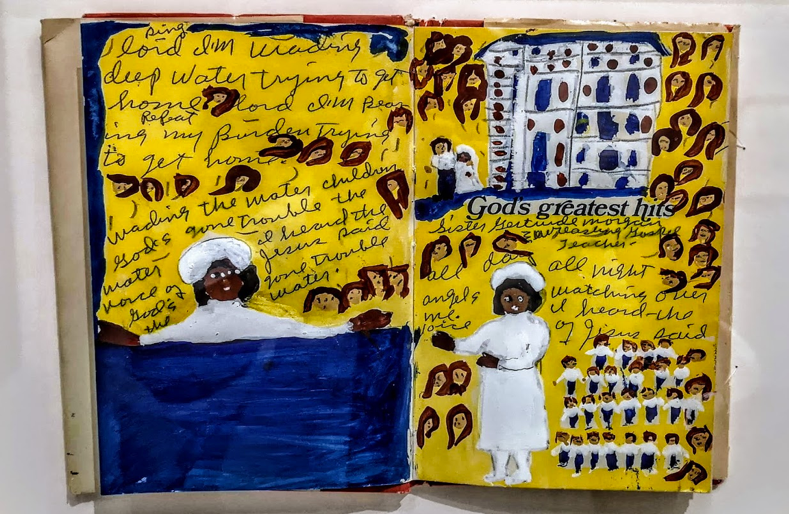 sing
lord i'm wading
deep water trying to get
home lord i'm bear
Repeat
ing my Burden trying
to get home
wading the water children
God's gone trouble the
water i heard the
voice of Jesus said
God's gone trouble
the water
God's greatest hits
Sister Gertrude morgan
Teacher
all day all night
angels watching over
me i heard the
voice of Jesus said